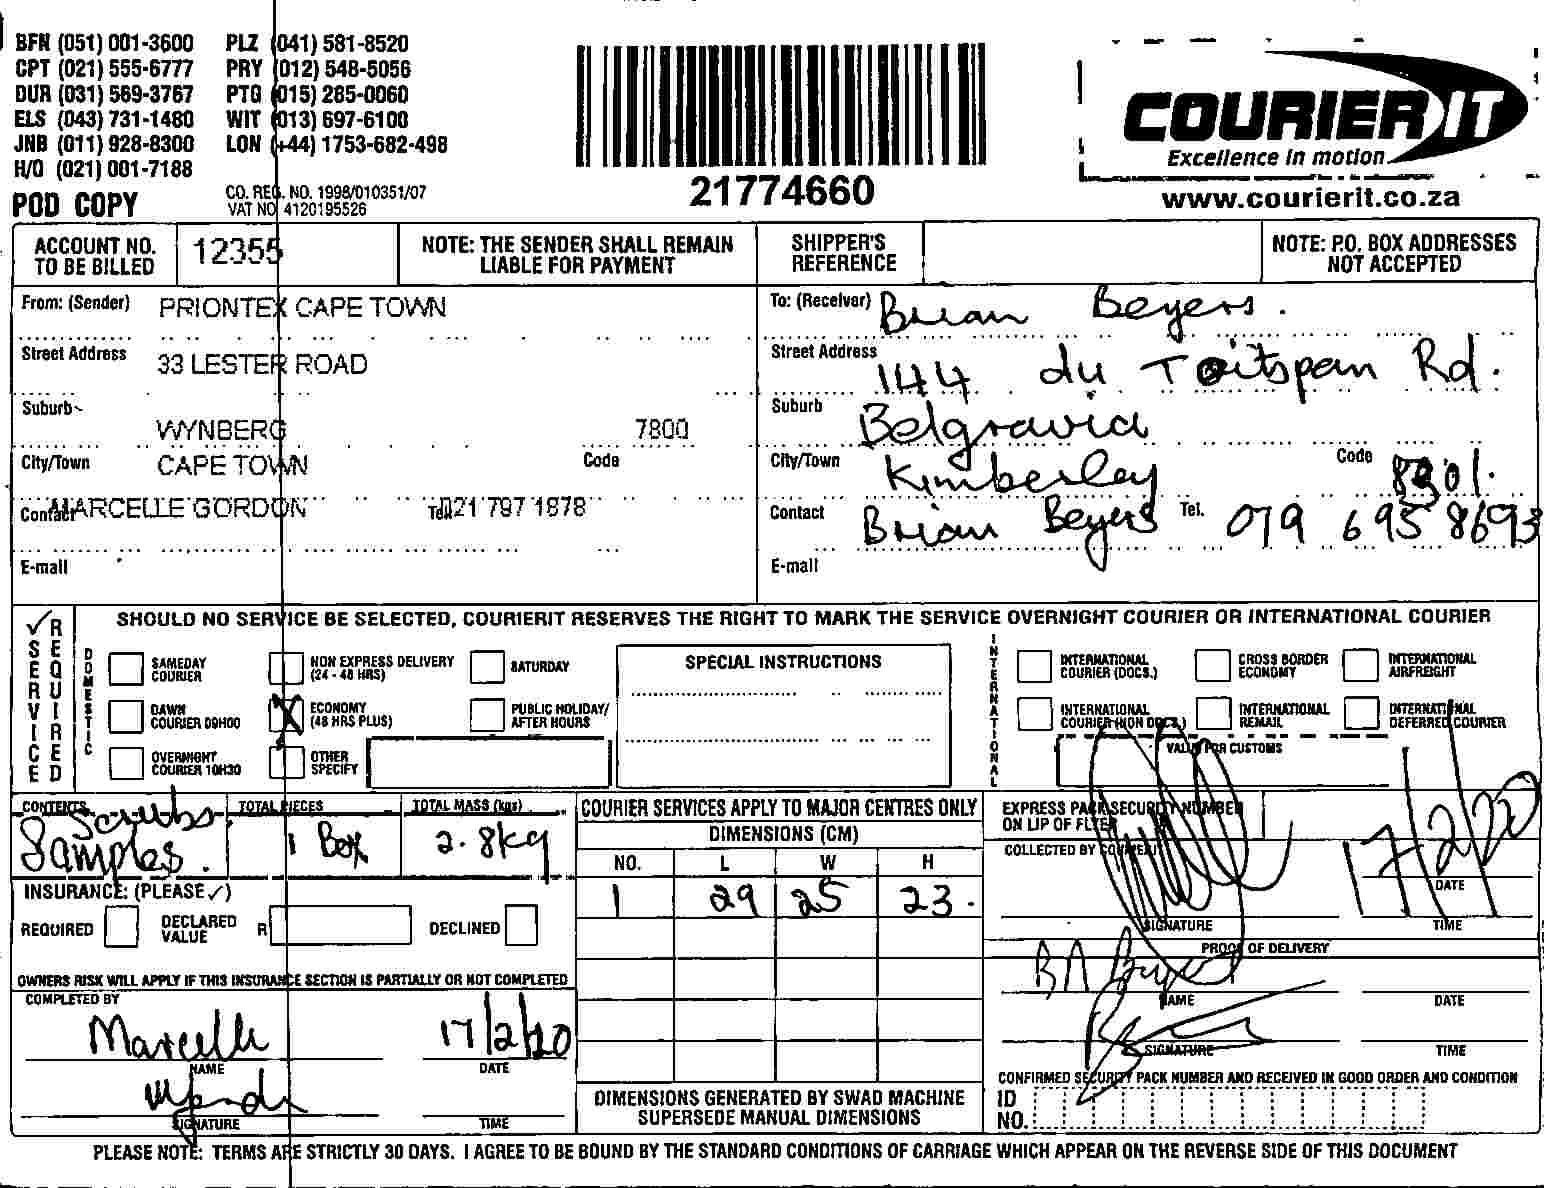 BFN (051) 001-3600 PLZ (041) 581-8520
CPT (021) 555-6777 PRY (012) 548-5056
DUR (031) 569-3767 PTG (015) 285-0060
ELS (043) 731-1480 WIT (013) 697-6100
JNB (011) 928-8300 LON (+44) 1753-682-498
H/O (021) 001-7188
POD COPY
CO. REG. NO. 1998/010351/07
VAT NO 4120195526
21774660
COURIER IT
Excellence in motion
www.courierit.co.za
ACCOUNT NO. TO BE BILLED 12355
NOTE: THE SENDER SHALL REMAIN LIABLE FOR PAYMENT
SHIPPER'S REFERENCE
NOTE: P.O. BOX ADDRESSES NOT ACCEPTED
From: (Sender) PRIONTEX CAPE TOWN
Street Address 33 LESTER ROAD
Suburb WYNBERG 7800
City/Town CAPE TOWN Code
Contact MARCELLE GORDON Tel. 021 797 1878
E-mail
To: (Receiver) Brian Beyers.
Street Address 144 du Toitspan Rd.
Suburb Belgravia
City/Town Kimberley Code 8301.
Contact Brian Beyers Tel. 079 695 8693
E-mail
SERVICE REQUIRED
SHOULD NO SERVICE BE SELECTED, COURIERIT RESERVES THE RIGHT TO MARK THE SERVICE OVERNIGHT COURIER OR INTERNATIONAL COURIER
DOMESTIC
SAMEDAY COURIER
NON EXPRESS DELIVERY (24 - 48 HRS)
SATURDAY
DAWN COURIER 09H00
ECONOMY (48 HRS PLUS)
PUBLIC HOLIDAY/ AFTER HOURS
OVERNIGHT COURIER 10H30
OTHER SPECIFY
SPECIAL INSTRUCTIONS
INTERNATIONAL
INTERNATIONAL COURIER (DOCS.)
CROSS BORDER ECONOMY
INTERNATIONAL AIRFREIGHT
INTERNATIONAL COURIER (NON DOCS.)
INTERNATIONAL REMAIL
INTERNATIONAL DEFERRED COURIER
VALUE FOR CUSTOMS
CONTENTS Scrubs Samples.
TOTAL PIECES 1 Box
TOTAL MASS (kgs) 2.8kg
INSURANCE: (PLEASE ✓)
REQUIRED DECLARED VALUE R DECLINED
OWNERS RISK WILL APPLY IF THIS INSURANCE SECTION IS PARTIALLY OR NOT COMPLETED
COMPLETED BY
Marcelle 17/2/20
NAME DATE
SIGNATURE TIME
COURIER SERVICES APPLY TO MAJOR CENTRES ONLY
DIMENSIONS (CM)
NO. L W H
1 29 25 23.
DIMENSIONS GENERATED BY SWAD MACHINE
SUPERSEDE MANUAL DIMENSIONS
EXPRESS PACK SECURITY NUMBER ON LIP OF FLYER
COLLECTED BY COURIERIT
17/2/20
DATE
SIGNATURE TIME
PROOF OF DELIVERY
NAME DATE
SIGNATURE TIME
CONFIRMED SECURITY PACK NUMBER AND RECEIVED IN GOOD ORDER AND CONDITION
ID NO.
PLEASE NOTE: TERMS ARE STRICTLY 30 DAYS. I AGREE TO BE BOUND BY THE STANDARD CONDITIONS OF CARRIAGE WHICH APPEAR ON THE REVERSE SIDE OF THIS DOCUMENT